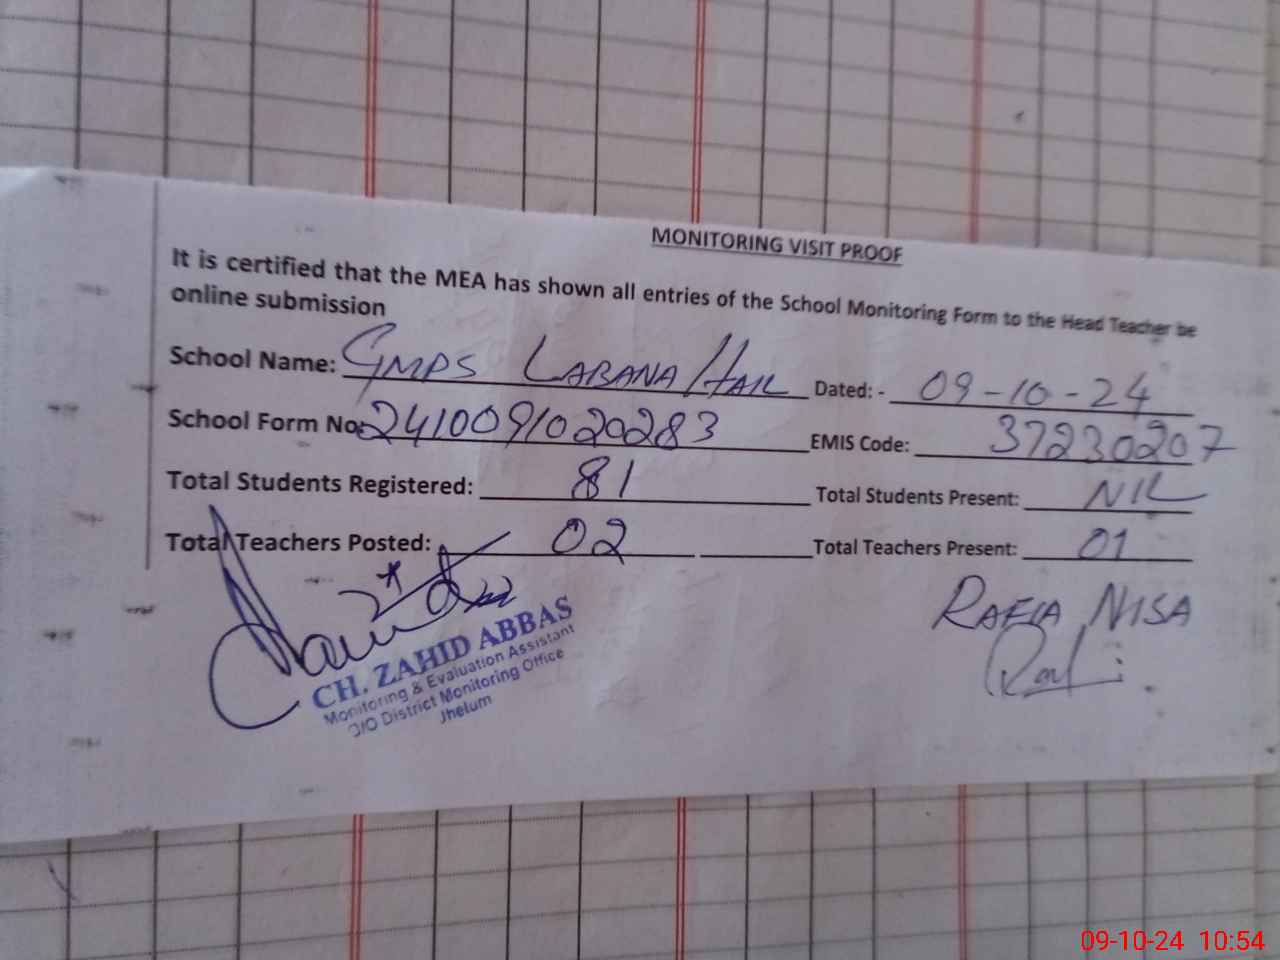 MONITORING VISIT PROOF
It is certified that the MEA has shown all entries of the School Monitoring Form to the Head Teacher be
online submission
School Name: GMPS LABANA HAIL Dated: - 09-10-24
School Form No: 2410091020283 EMIS Code: 37230207
Total Students Registered: 81 Total Students Present: NIL
Total Teachers Posted: 02 Total Teachers Present: 01
RAFIA NISA
CH. ZAHID ABBAS
Monitoring & Evaluation Assistant
O/O District Monitoring Office
Jhelum
09-10-24 10:54